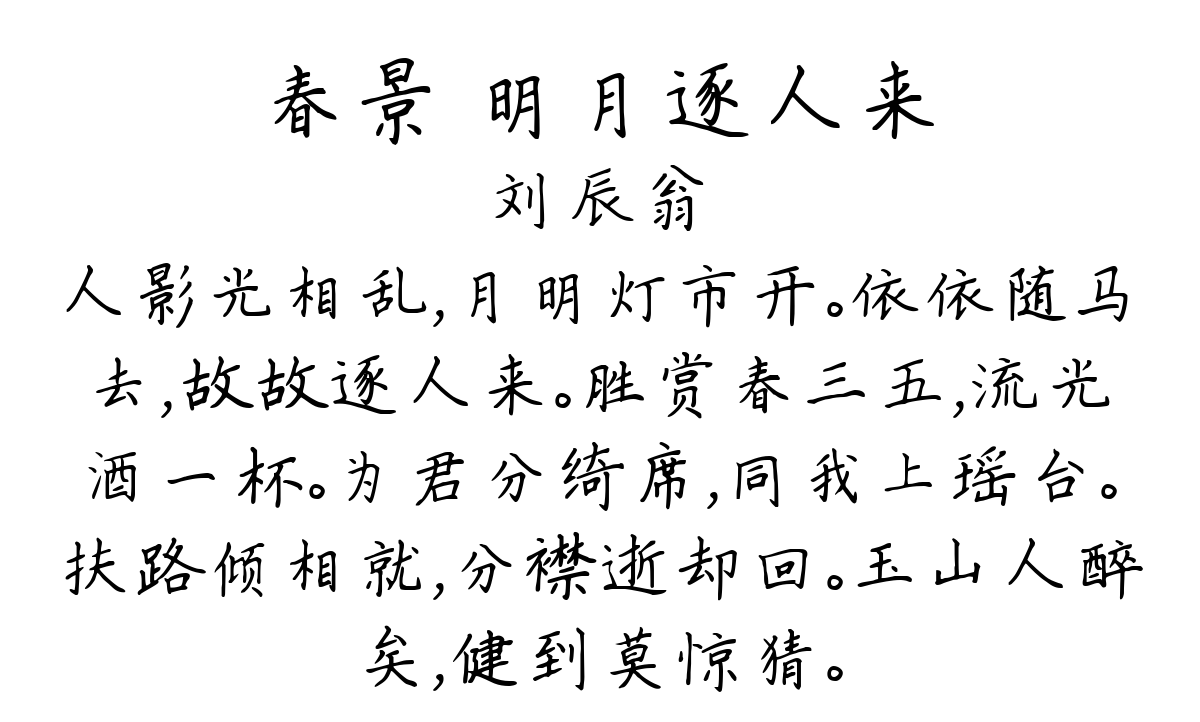 春景 明月逐人来
刘辰翁
人影光相乱,月明灯市开。依依随马
去,故故逐人来。胜赏春三五,流光
酒一杯。为君分绮席,同我上瑶台。
扶路倾相就,分襟逝却回。玉山人醉
矣,健到莫惊猜。